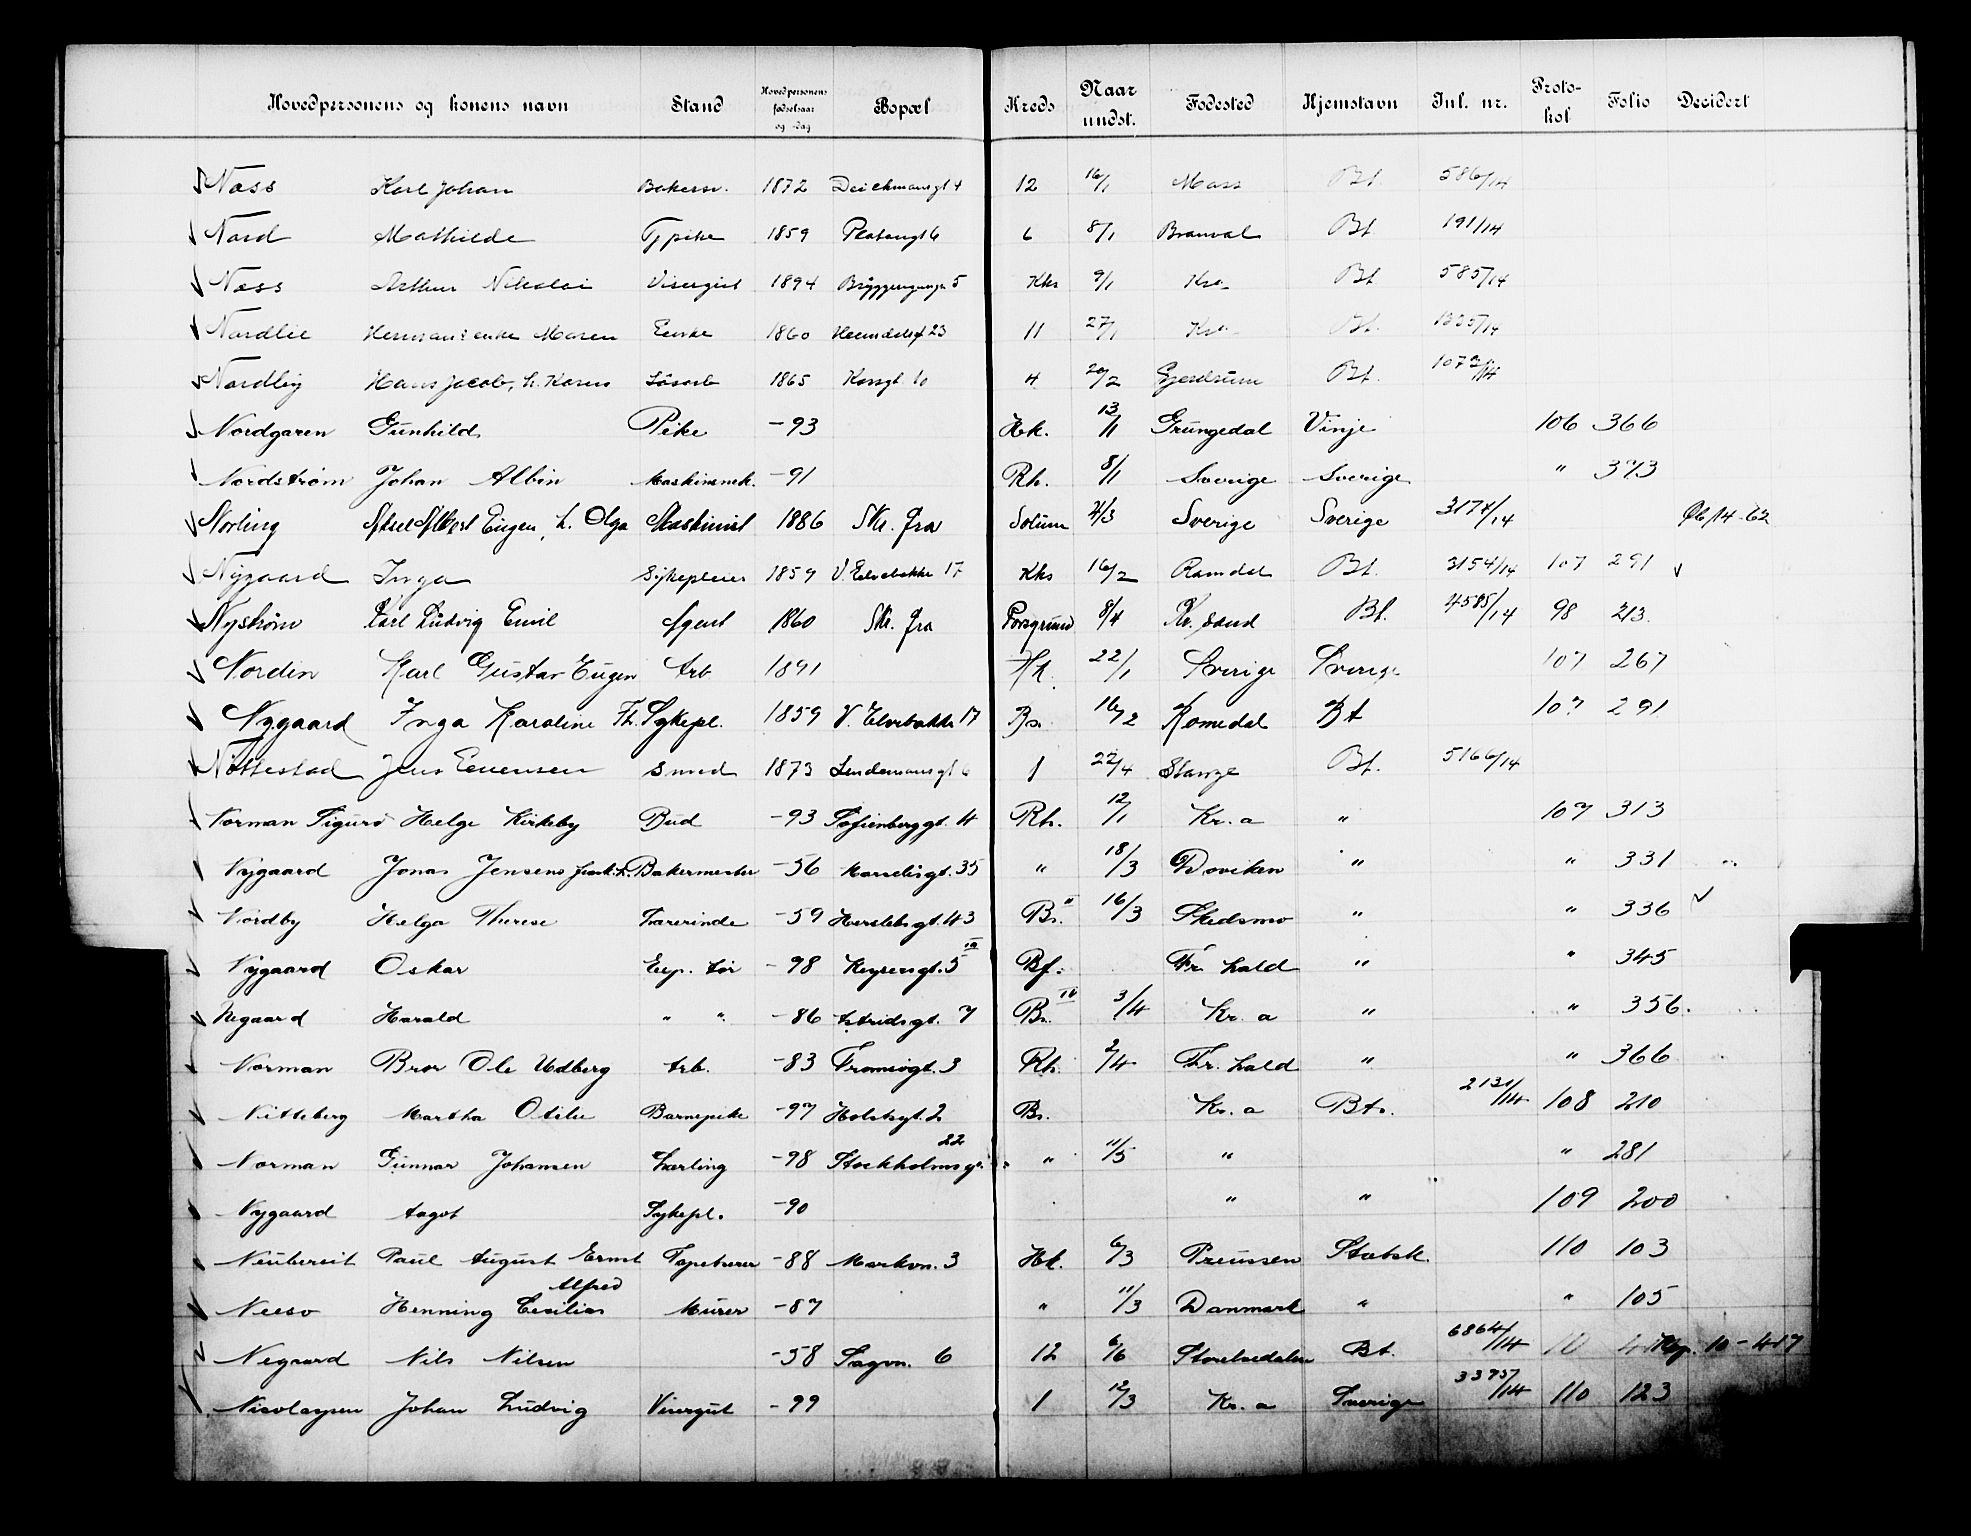 Hovedpersonens og konens navn Stand Hovedpersonens fødselsaar og -dag Bopæl Kreds Naar undst. Fødested Hjemstavn Inl. nr. Protokol Folio Decidert
Næss Karl Johan Bakersv. 1872 Deichmansgt 4 12 16/1 Moss Bt. 586/14
Nord Mathilde Tjpike 1859 Platougt 6 6 8/1 Branval Bt. 191/14
Næss Arthur Nikolai Visergut 1894 5 Kks 9/1 Kra Bt 585/14
Nordlie Hermans enke Maren Enke 1860 Heimdalsgt 23 11 27/1 Kra Bt. 1335/14
Nordby Hans Jacob, h. Karen Løsarb 1865 Korsgt. 10 4 20/2 Gjerdrum Bt. 1072/14
Nordgaren Gunhild Pike -93 Hk. 13/1 Grungedal Vinje 106 366
Nordstrøm Johan Albin Maskinmek. -91 Rh. 8/1 Sverige Sverige " 373
Norling Axel Albert Eugen, h. Olga Maskinist 1886 Skr. fra Solum 4/3 Sverige Sverige 3174/14 Øb/14-62
Nygaard Inga Sykepleier 1859 V. Elvebakke 17 Kks 16/2 Romdal Bt. 3154/14 107 291
Nystrøm Karl Ludvig Emil Agent 1860 Skr. fra Porsgrund 8/4 Kr. sand Bt. 4585/14 98 213.
Norden Karl Gustav Eugen Arb 1891 Hk. 22/1 Sverige Sverige 107 267
Nygaard Inga Karoline Th. Sykepl. 1859 V. Elvebakke 17 Bs. 16/2 Romedal Bt 107 291
Nøttestad Jens Evensen Smed 1873 Lindemansgt 6 1 22/4 Stange Bt. 5166/14
Norman Sigurd Helge Kirkeby Bud -93 Sofienberggt. 4 Rh. 12/1 Kr.a " 107 313
Nygaard Jonas Jensens frask. h. Bakermester -56 Markveisgt. 35 " 18/3 Doviken " " 331 "
Nordby Helga Therese Farerinde -59 Herslebsgt. 43 Bs. " 16/3 Skedsmo " " 336
Nygaard Oskar Exp. tør -98 Keysersgt. 5 IV Bf. Fr. hald " " 345
Negaard Harald " " -86 Astridsgt. 7 Bs. IV 3/4 Kr. a " " 356.
Norman Bror Ole Udberg Arb. -83 Tromsøgt. 3 Rh. 2/4 Fr. hald " " 366
Nitteberg Martha Otilie Barnepike -97 Holstsgt. 2 Bs. Kr. a Bt. 2131/14 108 210
Norman Gunnar Johansen Lærling -98 Stockholmsgt. 22 " 11/5 " " 281
Nygaard Aagot Sykepl. -90 " " 109 200
Neubereit Paul August Ernst Tapetserer -88 Markvn. 3 Hk. 6/3 Preussen Statsk. 110 103
Neeso Henning Cecilius Alfred Murer -87 " 11/3 Danmark " " 105
Negaard Nils Nilsen -58 Sagvn. 6 12 6/6 Storelvedalen Bt. 6864/14 10 - 417
Nicolaysen Johan Ludvig Visergut -99 1 12/3 Kr. a Sverige 3395/14 110 123